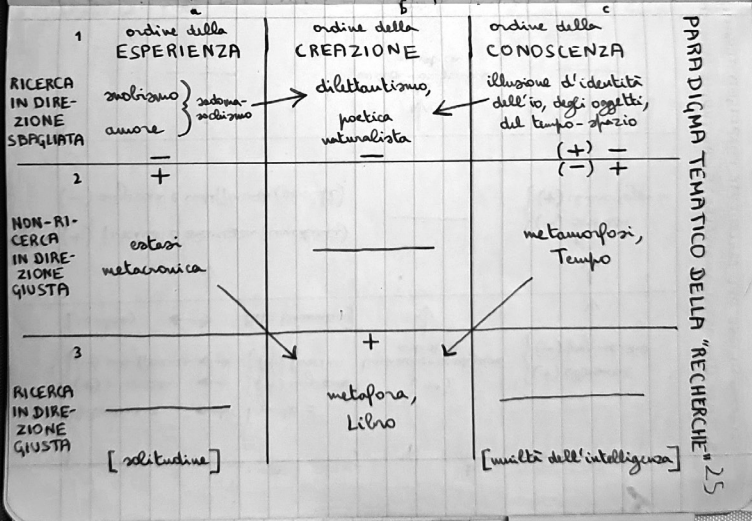 a
b
c
1
ordine della
ESPERIENZA
ordine della
CREAZIONE
ordine della
CONOSCENZA
RICERCA
IN DIRE-
ZIONE
SBAGLIATA
snobismo
amore
sadoma-
sochismo
dilettantismo,
poetica
naturalista
illusione d'identità
dell'io, degli oggetti,
del tempo-spazio
−
−
(+) −
2
+
(−) +
NON-RI-
CERCA
IN DIRE-
ZIONE
GIUSTA
estasi
metacronica
metamorfosi,
Tempo
3
+
RICERCA
IN DIRE-
ZIONE
GIUSTA
metafora,
Libro
[solitudine]
[umiltà dell'intelligenza]
PARADIGMA TEMATICO DELLA "RECHERCHE"
25